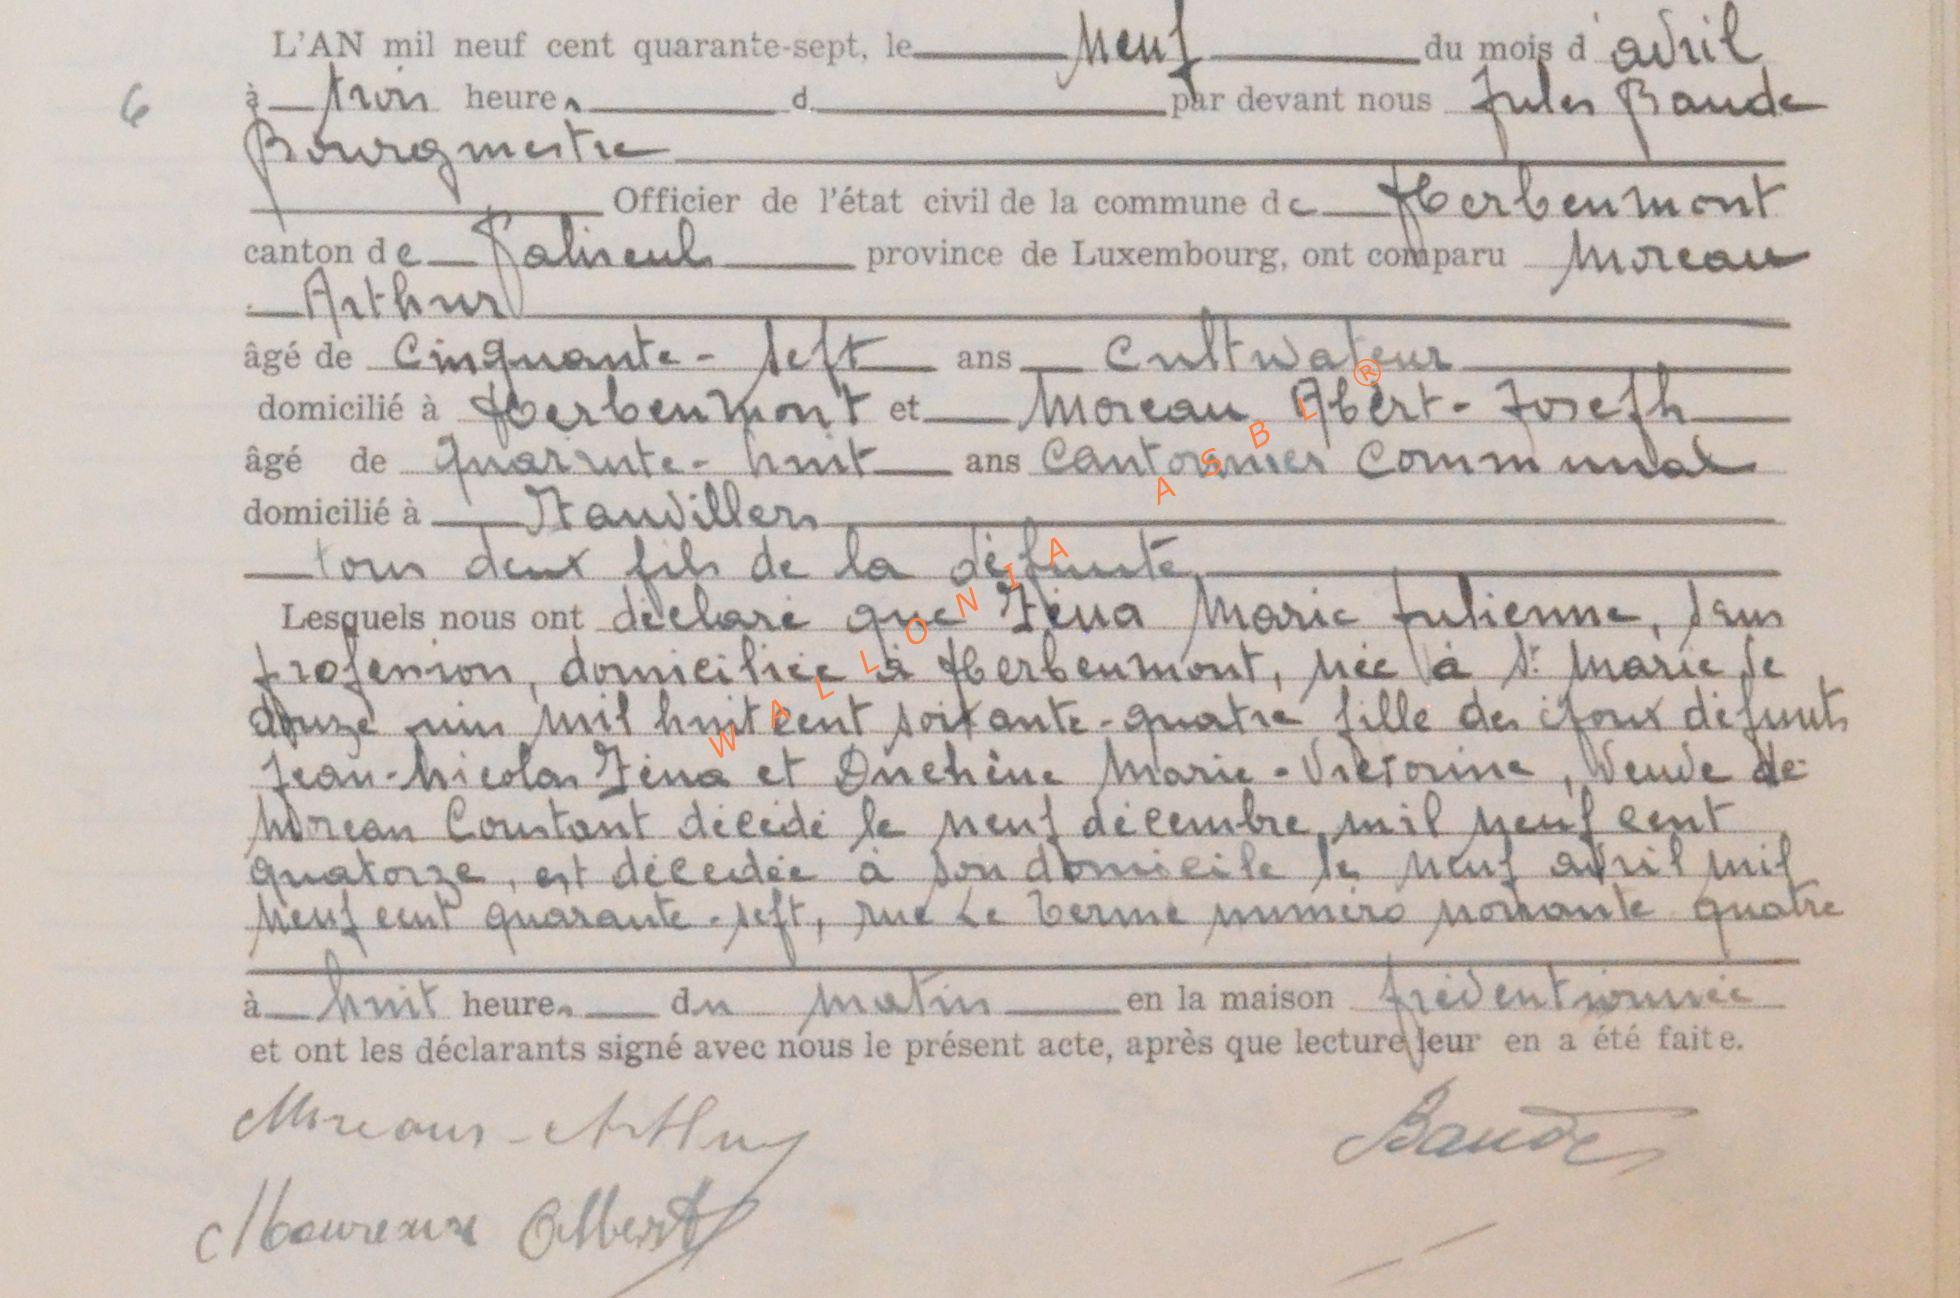 L'AN mil neuf cent quarante-sept, le neuf du mois d'avril
6 à trois heures d par devant nous Jules Baude
Bourgmestre
Officier de l'état civil de la commune de Herbeumont
canton de Paliseul province de Luxembourg, ont comparu Moreau
Arthur
âgé de cinquante-sept ans cultivateur
domicilié à Herbeumont et Moreau Albert-Joseph
âgé de quarante-huit ans cantonnier communal
domicilié à
tous deux fils de la défunte
Lesquels nous ont déclaré que Marie Julienne, sans
profession, domiciliée à Herbeumont, née à St Marie le
douze mil huit cent soixante-quatre fille des époux défunts
Jean-Nicolas et Duchêne Marie-Victorine, veuve de
Moreau Constant décédé le neuf décembre mil neuf cent
quatorze, est décédée à son domicile le neuf avril mil
neuf cent quarante-sept, rue Le Terme numéro nonante quatre
à huit heures du matin en la maison prédentionnée
et ont les déclarants signé avec nous le présent acte, après que lecture leur en a été faite.
Moreau Arthur Baude
Moureaux Albert
WALLONIA ASBL ®